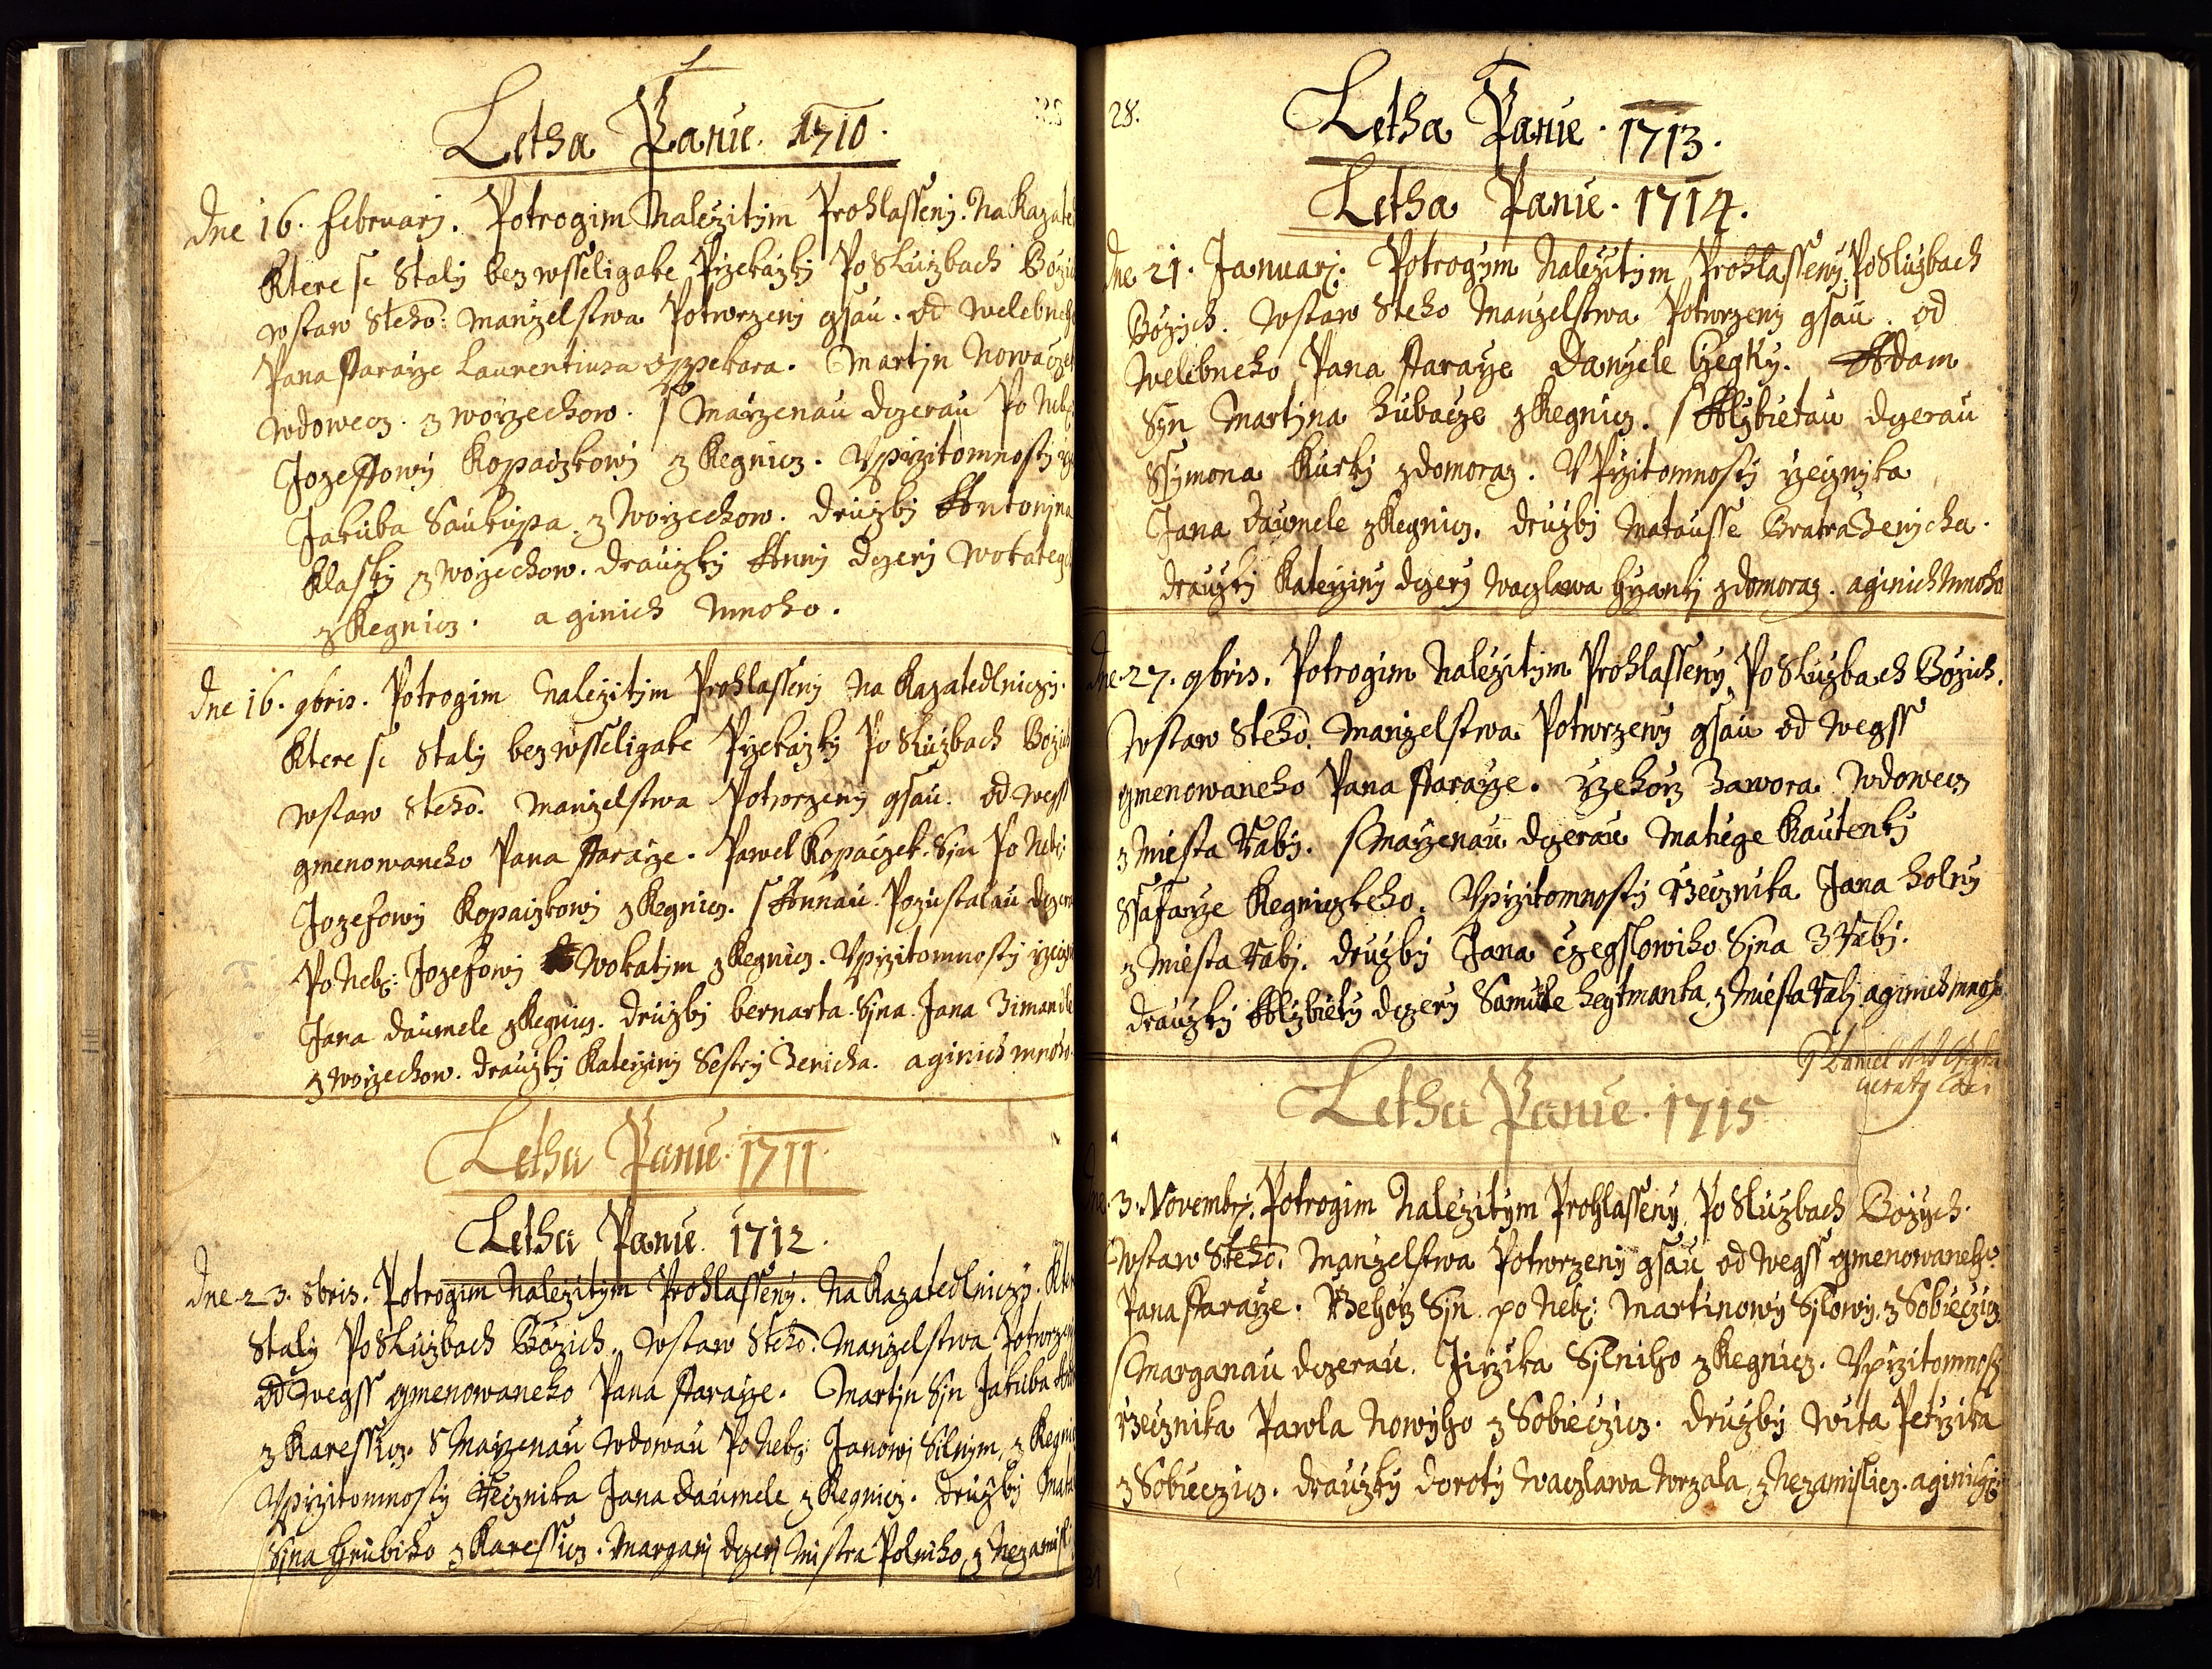 Letha Panie. 1710.
dne 16. februarj. Potrogim Nalezitim Prohlasseny. Na Kazate
Ktere se Staly bez wsseligake Przekazky Po Sluzbach Bozi
wstaw Steho: Manzelstwa Potwrzeny gsau. od Welebneh
Pana ffararze Laurentiusa Oppekara. Martjn Nowaczek
Wdowecz. z Worzechow. s Marzenau dczerau Po Neb:
Jozeffowy Kopaczkowj z Kegnicz. Vprzitomnosti
Jakuba Saukupa z Worzechow. druzbj Antonjna
Klasky z Worzechow. drauzky Anny dczerj Wokateg
z Kegnicz. a ginich mnoho.
dne 16. 9bris. Potrogim Nalezitim Prohlasseny Na Kazatedlniczy.
Ktere se Staly bez wsseligake Przekazky Po Sluzbach Bozich
wstaw Steho. Manzelstwa Potwrzeny gsau. od wegss
gmenowaneho Pana ffararze. Pawel Kopaczek. Sjn Po Neb:
Jozefowy Kopaczkowj z Kegnicz. s Annau. Pozustalau dczera
Po Neb: Jozefowj Wokatjm z Kegnicz. Vprzitomnosti
Jana daumele z Kegnicz. druzbj bernarta. Sjna. Jana Zimandle
z Worzechow. drauzky Katerziny Sestry Zenicha. a ginich mnoho.
Letha Panie. 1711.
Letha Panie. 1712.
dne 23. 8bris. Potrogim Nalezitym Prohlasseny. Na Kazatedlniczy. Kter
Staly Po Sluzbach Bozich. wstaw Steho. Manzelstwa Potwrzen
od wegss gmenowaneho Pana ffararze. Martjn Sjn Jakuba
z Karessicz. s Marzenau Wdowau Po Neb: Janowj Silnjm, z Kegni
Vprzitomnosti Rzecznika Jana daumele z Kegnicz. druzbj
Sjna Hrubiho z Karessicz. Margarj dczerj Mistra Polniho, z Nezamisl
28.
Letha Panie. 1713.
Letha Panie. 1714.
dne 21. Januarj. Potrogym Nalezitym Prohlasseny. Po Sluzbach
Bozich. wstaw Steho Manzelstwa Potwrzeny gsau. od
Welebneho Pana ffararze Danyele Czegky. Adam
Syn Martjna Hubacze z Kegnicz. s Alzbietau dczerau
Ssymona Kurky z domoraz. V Przitomnosti rzecznjka
Jana daumele z Kegnicz. druzbj Matausse Bratra Zenycha.
drauzky Katerziny dczery Waczlawa z domoraz. a ginich mnoho
dne 27. 9bris. Potrogim Nalezitym Prohlasseny Po Sluzbach Bozich.
wstaw Steho. Manzelstwa Potwrzeny gsau od wegss
gmenowaneho Pana ffararze. Rzehorz Zawora Wdowecz
z Miesta Rabj. s Marzenau dczerau Matiege Kautenky
Ssafarze Kegniczkeho. Vprzitomnosti Rzecznika Jana Holny
z Miesta Rabj. druzbj Jana Czegslowiho Sjna z Rabj.
drauzky Alzbiety dczery Samuele Heytmanka, z Miesta Rabj a ginich mnoho
Letha Panie. 1715
dne 3. Novembr: Potrogim Nalezitym Prohlasseny Po Sluzbach Bozych.
wstaw Steho. Manzelstwa Potwrzeny gsau od wegss gmenowaneho
Pana ffararze. Rzehorz Sjn po Neb: Martinowy Sylowy z Sobieczicz
s Marganau dczerau. Jirzika Sylniho z Kegnicz. Vprzitomnosti
Rzecznika Pawla Nowyho z Sobieczicz. druzby Wita Petrzika
z Sobieczicz. drauzky doroty Waczlawa Wrzala z Nezamislicz. a ginich